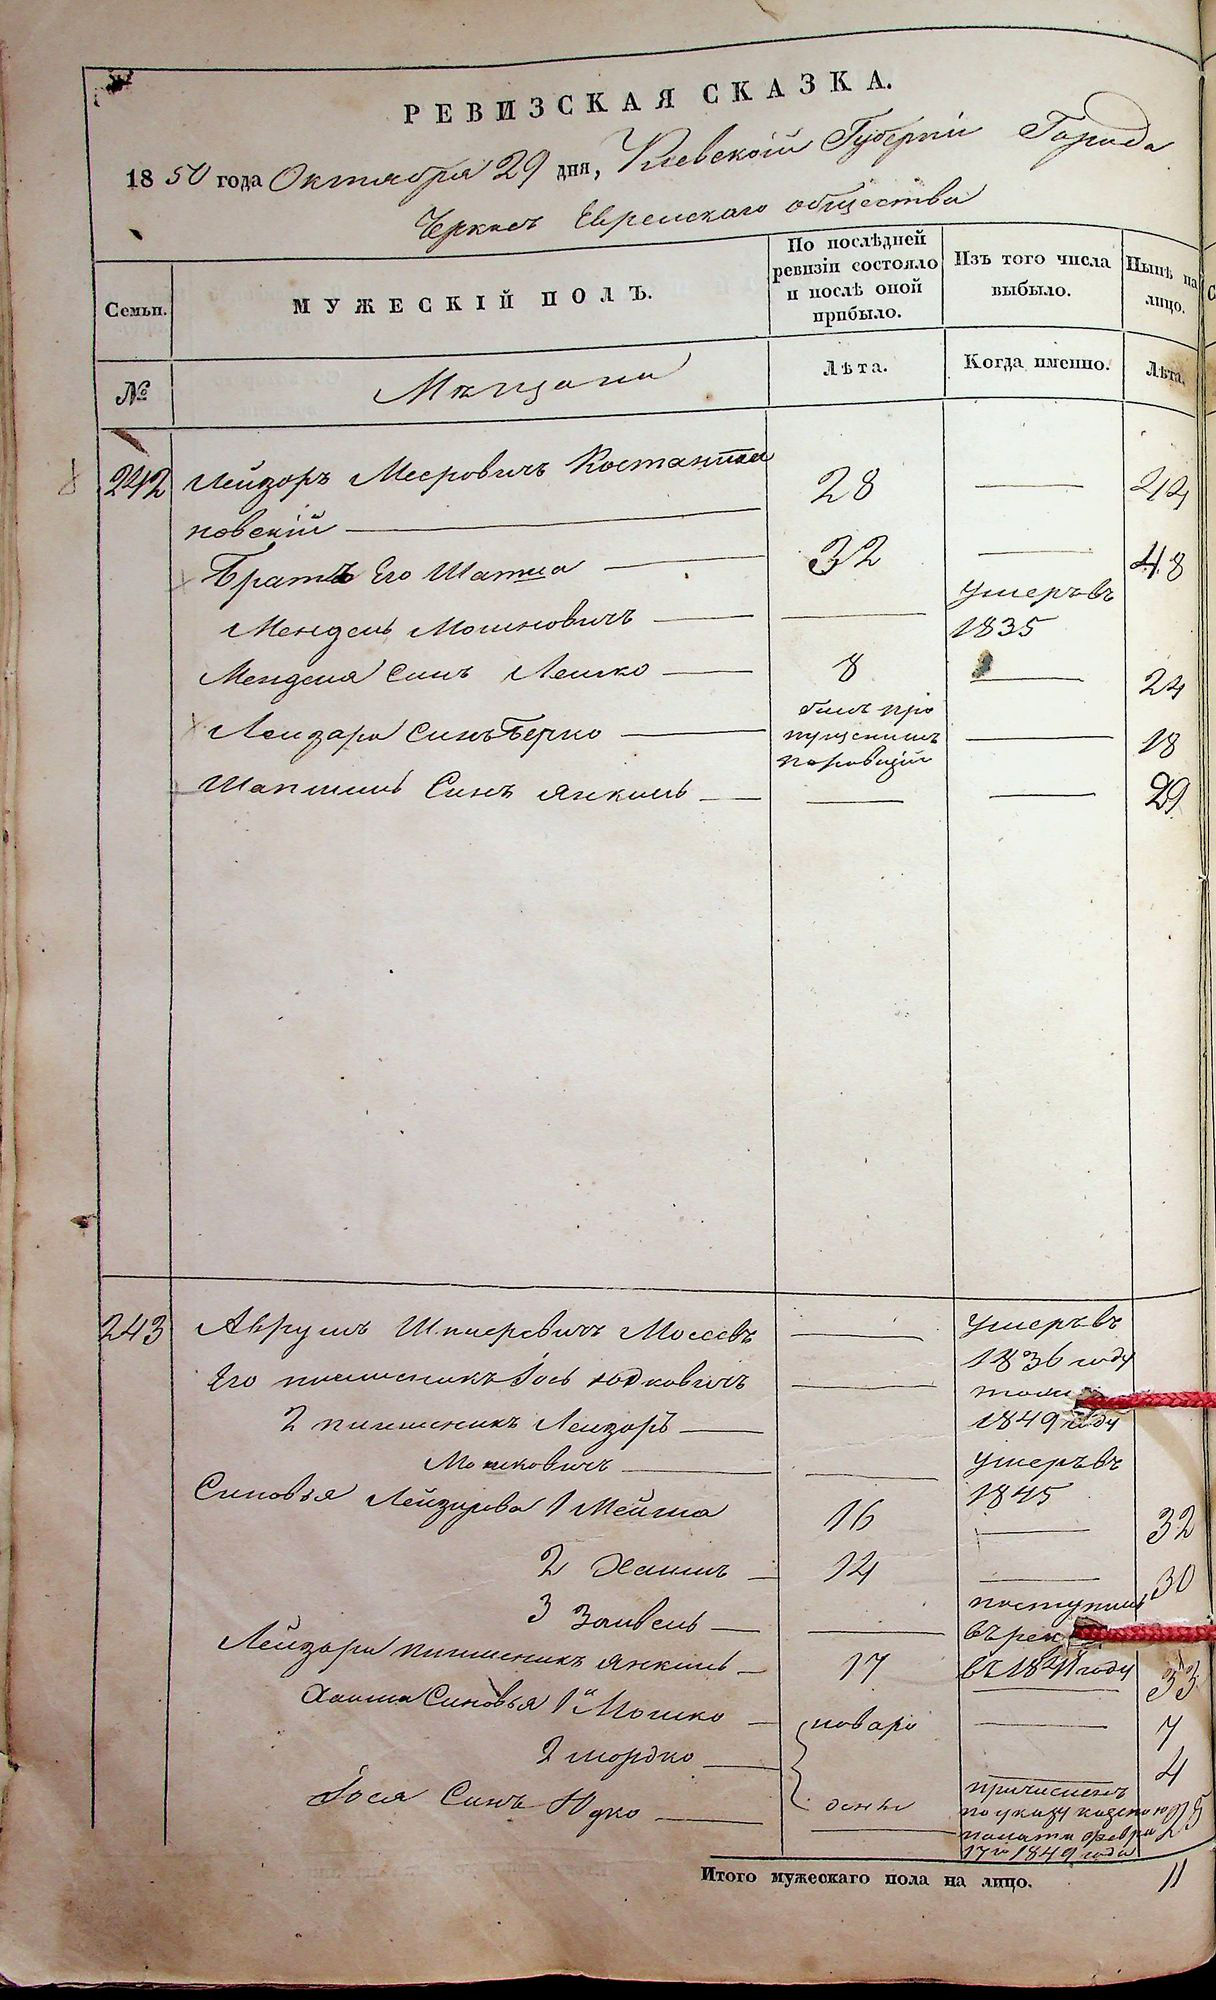 РЕВИЗСКАЯ СКАЗКА.
1850 года Октября 29 дня, Киевской Губерніи Города
Черкасъ Еврейскаго общества
Семьи.
МУЖЕСКІЙ ПОЛЪ.
По послѣдней ревизіи состояло и послѣ оной прибыло.
Изъ того числа выбыло.
Нынѣ на лицо.
№
Мѣщане
Лѣта.
Когда именно.
Лѣта.
242 Лейзоръ Меерович Костанти 28 — 44
новскій —
Братъ Его Шапса — 32 — 48
Мендель Мошковичъ — — умеръ въ 1835
Менделя Синъ Лейко — 8 — 24
Лейзора Синъ Берко — билъ пропущенимъ поревизіи — 18
Шапсини Синъ Янкель — — — 29
243 Аврумъ Шмиеровичъ Моссевъ — умеръ въ 1836 году
Его племеникъ Іось Юдковичъ —
1849 году
2 племеникъ Лейзоръ —
Мошковичъ — — умеръ въ 1845
Синовья Лейзорова 1 Мейша 16 — 32
2 Хаимъ — 14 — 30
3 Зайвель — — поступилъ въ рек
въ 1841 году
Лейзора племеникъ Янкель — 17 — 33
Хаима Синовья 1й Мошко — новоро — 7
2 Мордко — — 4
дени
Іося Синъ Юдко — — причисленъ по указу казеной палаты Февра 17го 1849 года 25
Итого мужескаго пола на лицо. 11